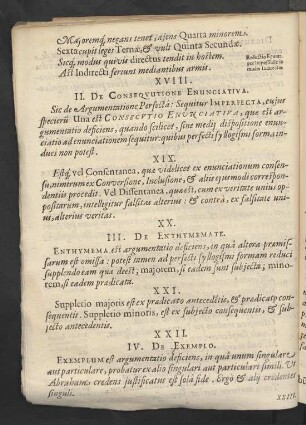 Majoremq; negans tenet, ajens Quarta minorem.
Sexta cupit leges Ternæ, & vult Quinta Secundæ.
Sicq; modus quivis directus tendit in hostem.
Ast Indirecti ferunt mediantibus armis.
XVIII.
II. DE CONSEQVUTIONE ENUNCIATIVA.
Sic de Argumentatione Perfectâ: Sequitur IMPERFECTA, cujus
specierũ Una est CONSECVTIO ENUNCIATIVA, quæ est ar-
gumentatio deficiens, quando scilicet, sine mediĳ dispositione enun-
ciatio ad enunciationem sequitur: quibus perfecti syllogismi forma in-
duci non potest.
XIX.
Estq; vel Consentanea, quæ videlicet ex enunciationum consen-
su, nimirum ex Conversione, Inclusione, & aliis ejusmodi correspon-
dentiis procedit. Vel Dissentanea, quæ est, cum ex veritate unius op-
positarum, intelligitur falsitas alterius: & contra, ex falsitate uni-
us, alterius veritas.
XX.
III. DE ENTHYMEMATE.
ENTHYMEMA est argumentatio deficiens, in quâ altera præmis-
sarum est omissa: potest tamen ad perfecti syllogismi formam reduci
supplendo eam quæ deest; majorem, si eadem sunt subjecta; mino-
rem, si eadem prædicata.
XXI.
Suppletio majoris est ex prædicato antecedentis, & prædicato con-
sequentis. Suppletio minoris, est ex subjecto consequentis, & sub-
jecto antecedentis.
XXII.
IV. DE EXEMPLO.
EXEMPLUM est argumentatio deficiens, in quâ unum singulare
aut particulare, probatur ex alio singulari aut particulari simili. Ut
Abraham credens justificatus est solâ fide, Ergò & alij credentes
singuli.
XXIII.